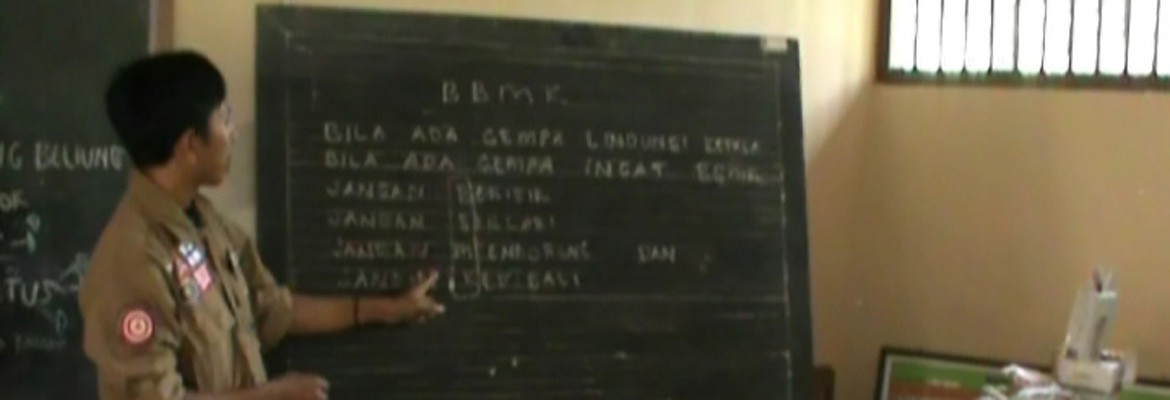 BELIUNG
TUS
BBMK
BILA ADA GEMPA LINDUNGI KEPALA
BILA ADA GEMPA INGAT BBMK
JANGAN BERISIK
JANGAN BERLARI
JANGAN MENDORONG DAN
JANGAN KEMBALI